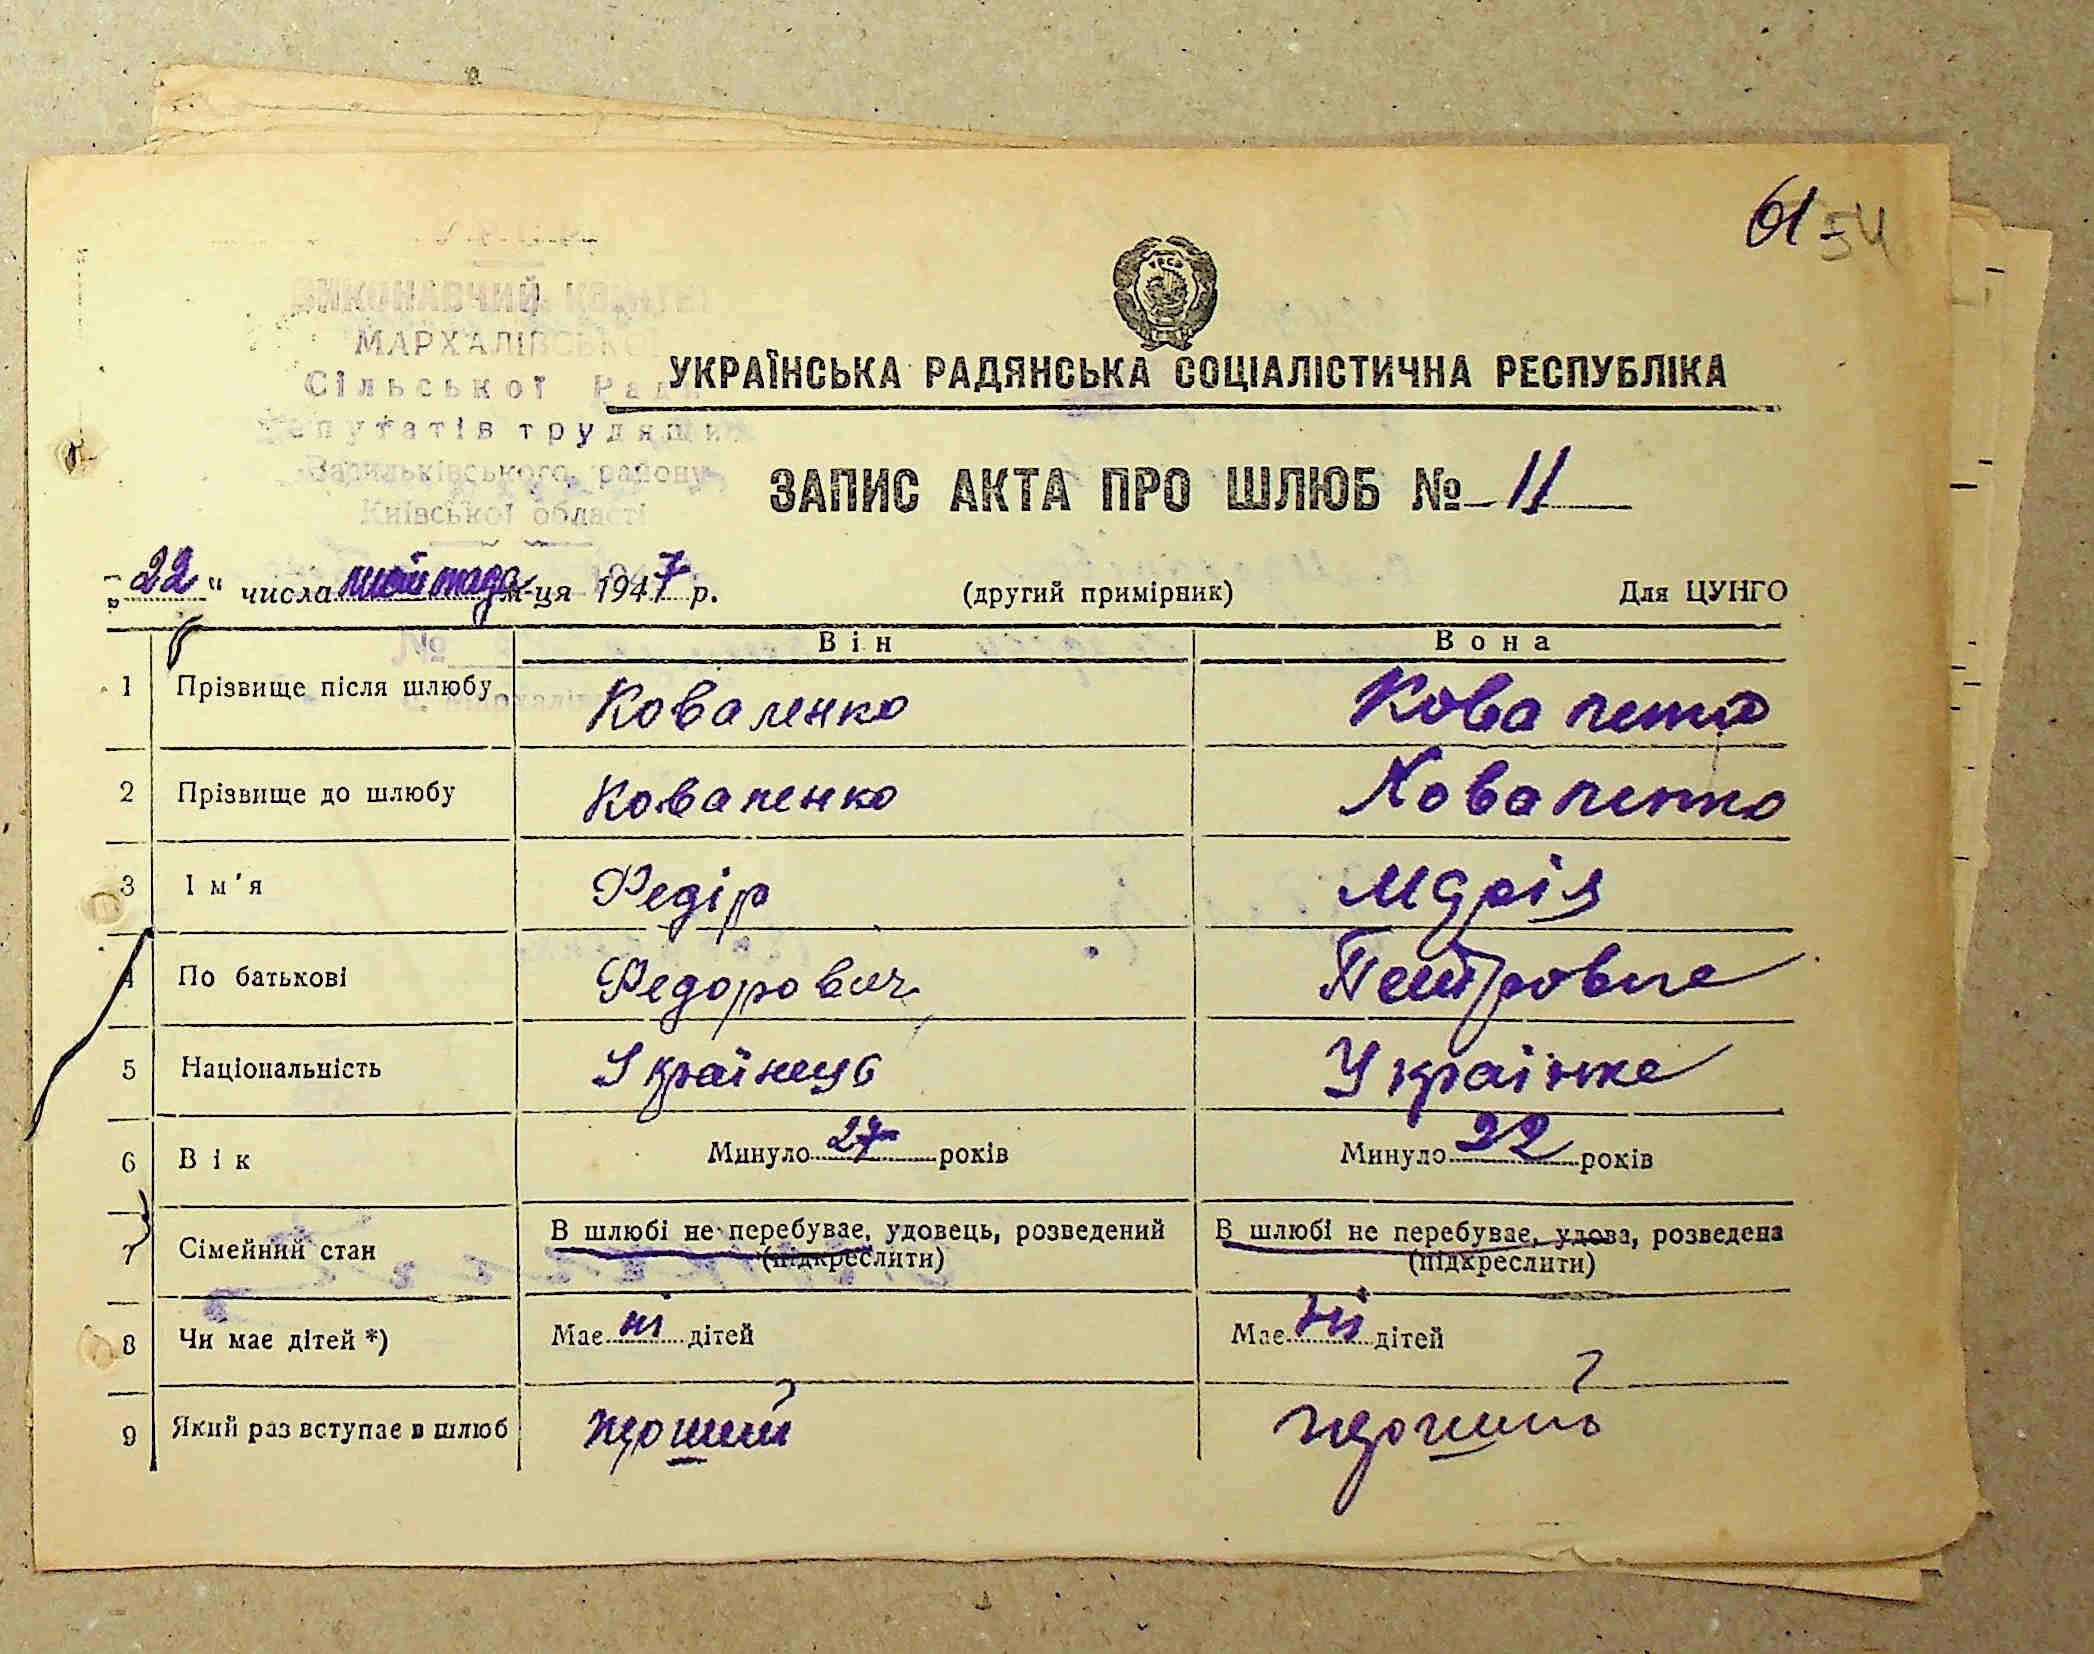 61 54
ВИКОНАВЧИЙ КОМІТЕТ
МАРХАЛІВСЬКОЇ
Сільської Ради
депутатів трудящих
району
Київської області
УКРАЇНСЬКА РАДЯНСЬКА СОЦІАЛІСТИЧНА РЕСПУБЛІКА
ЗАПИС АКТА ПРО ШЛЮБ № 11
„22" числа листопада м-ця 1947 р. (другий примірник) Для ЦУНГО
№
Він Вона
1 Прізвище після шлюбу Коваленко Коваленко
2 Прізвище до шлюбу Коваленко Коваленко
3 Ім'я Федір Марія
4 По батькові Федорович Петровне
5 Національність Українець Українке
6 Вік Минуло 27 років Минуло 22 років
7 Сімейний стан В шлюбі не перебуває, удовець, розведений (підкреслити) В шлюбі не перебуває, удова, розведена (підкреслити)
8 Чи має дітей *) Має ні дітей Має ні дітей
9 Який раз вступає в шлюб перший